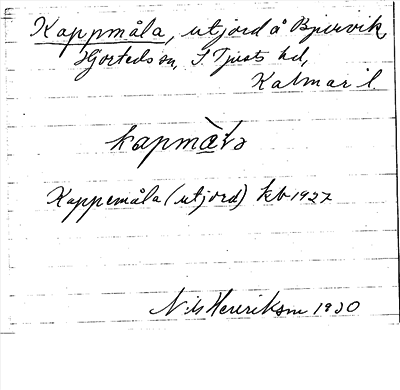 Kappmåla, utjord å Bjurvik,
Hjorteds sn, S. Tjusts hd,
Kalmar l.
kapmå̀la
Kappemåla (utjord) kb 1927
Nils Henriksson 1930